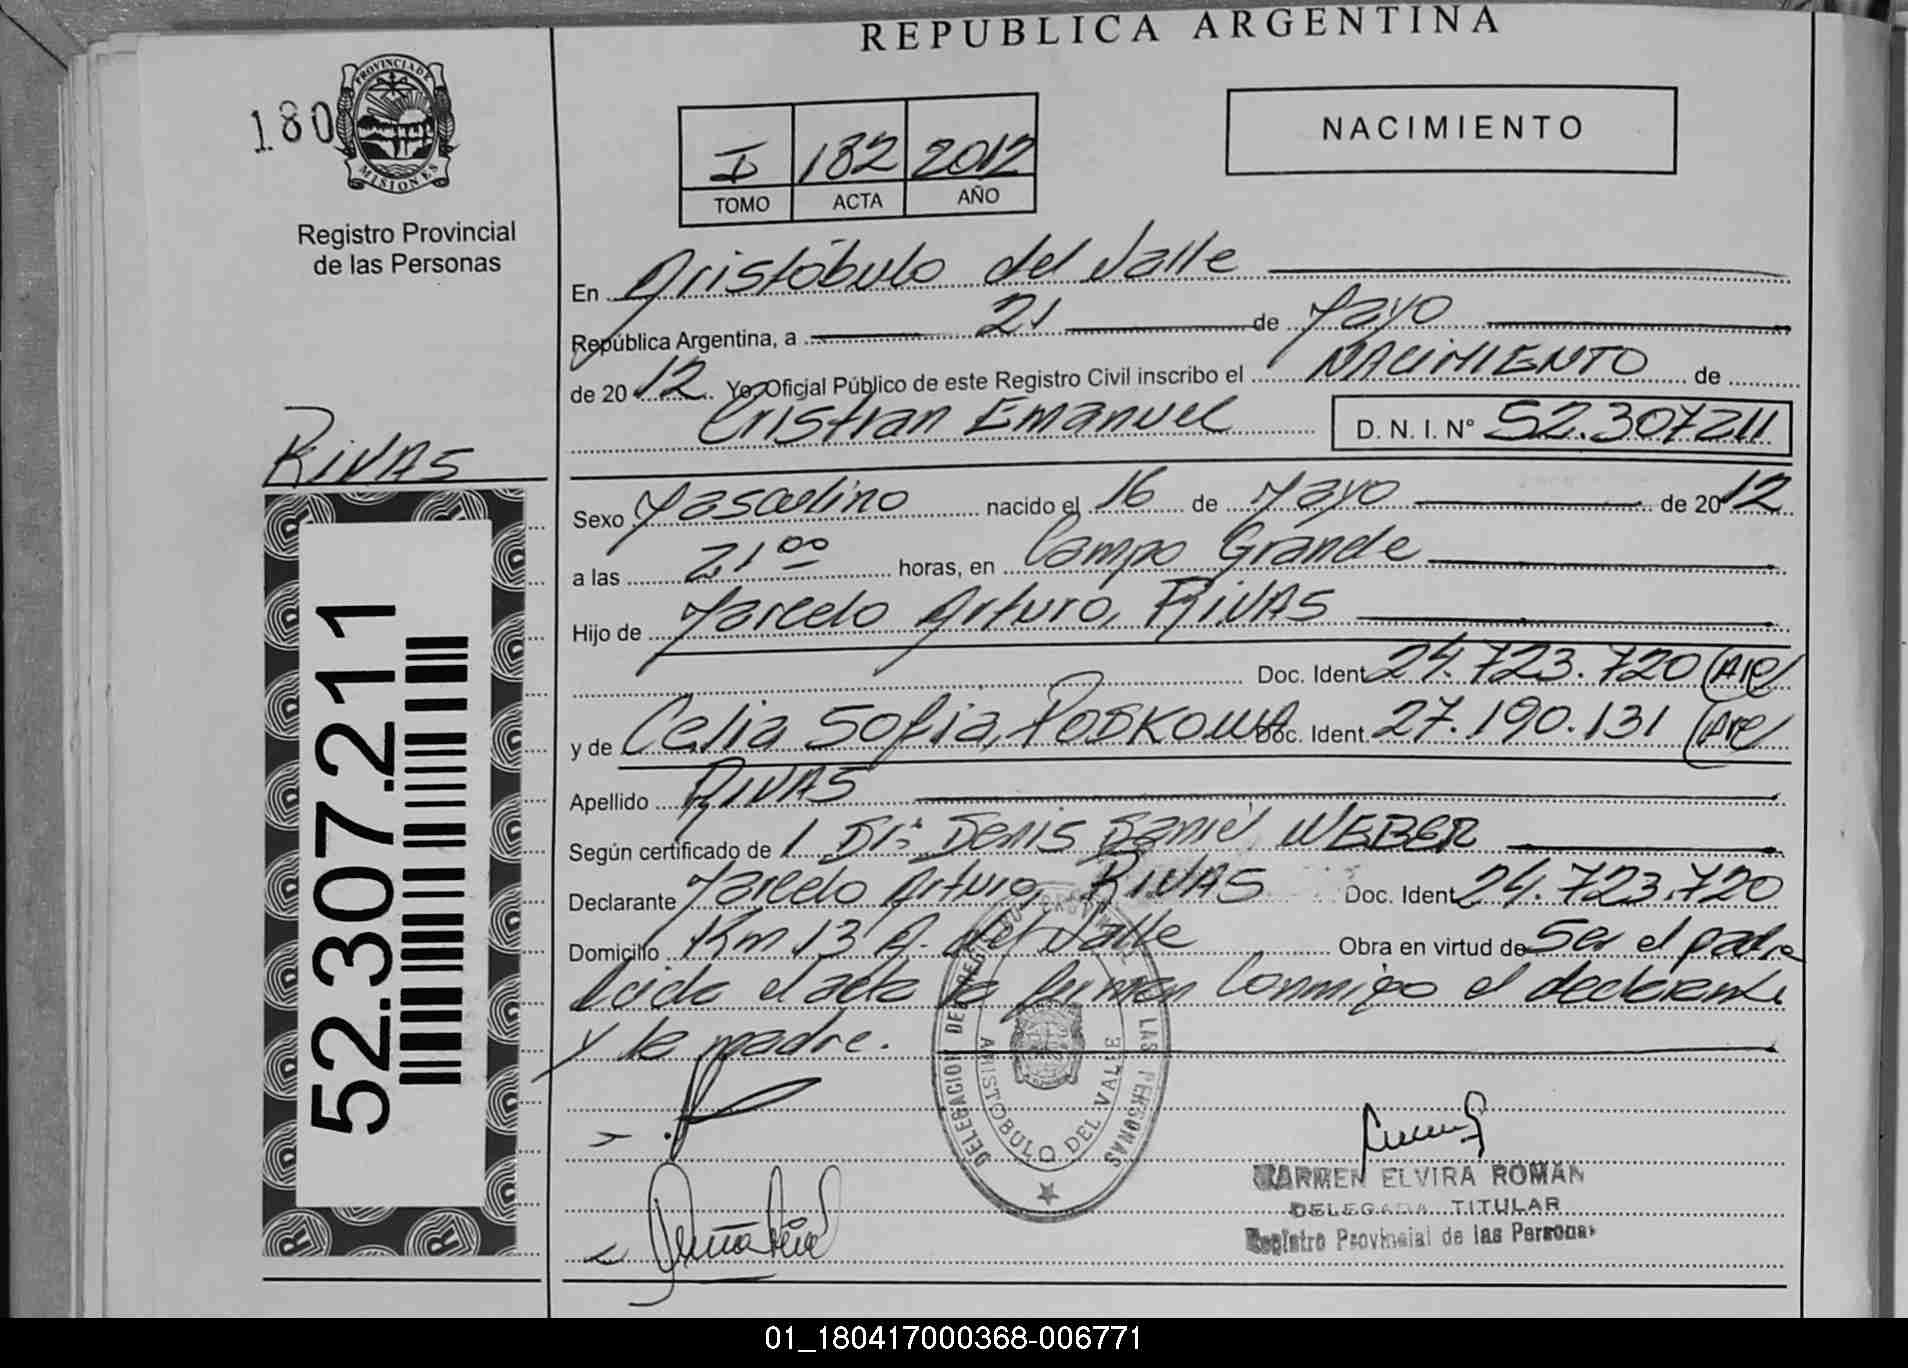 REPUBLICA ARGENTINA
180
PROVINCIA DE
MISIONES
Registro Provincial
de las Personas
NACIMIENTO
I 182 2012
TOMO ACTA AÑO
En Aristóbulo del Valle
República Argentina, a 21 de Mayo
de 20 12 Yo, Oficial Público de este Registro Civil inscribo el NACIMIENTO de
Cristian Emanuel D. N. I. N° 52.307211
RIVAS
Sexo Masculino nacido el 16 de Mayo de 20 12
a las 21 00 horas, en Campo Grande
Hijo de Marcelo Arturo, RIVAS
Doc. Ident. 24.723.720 (Arg)
y de Celia Sofia, POSKOWA Doc. Ident. 27.190.131 (Arg)
Apellido RIVAS
Según certificado de 1 Dr: Denis Daniel WEBER
Declarante Marcelo Arturo, RIVAS Doc. Ident. 24.723.720
Domicilio Km 13 A. del Valle Obra en virtud de Ser el padre
Leida el acta la firman Conmigo el declarante
y la madre.
52.307.211
DELEGACION DEL REGISTRO PROVINCIAL DE LAS PERSONAS
ARISTOBULO DEL VALLE
CARMEN ELVIRA ROMAN
DELEGADA TITULAR
Registro Provincial de las Personas
01_180417000368-006771